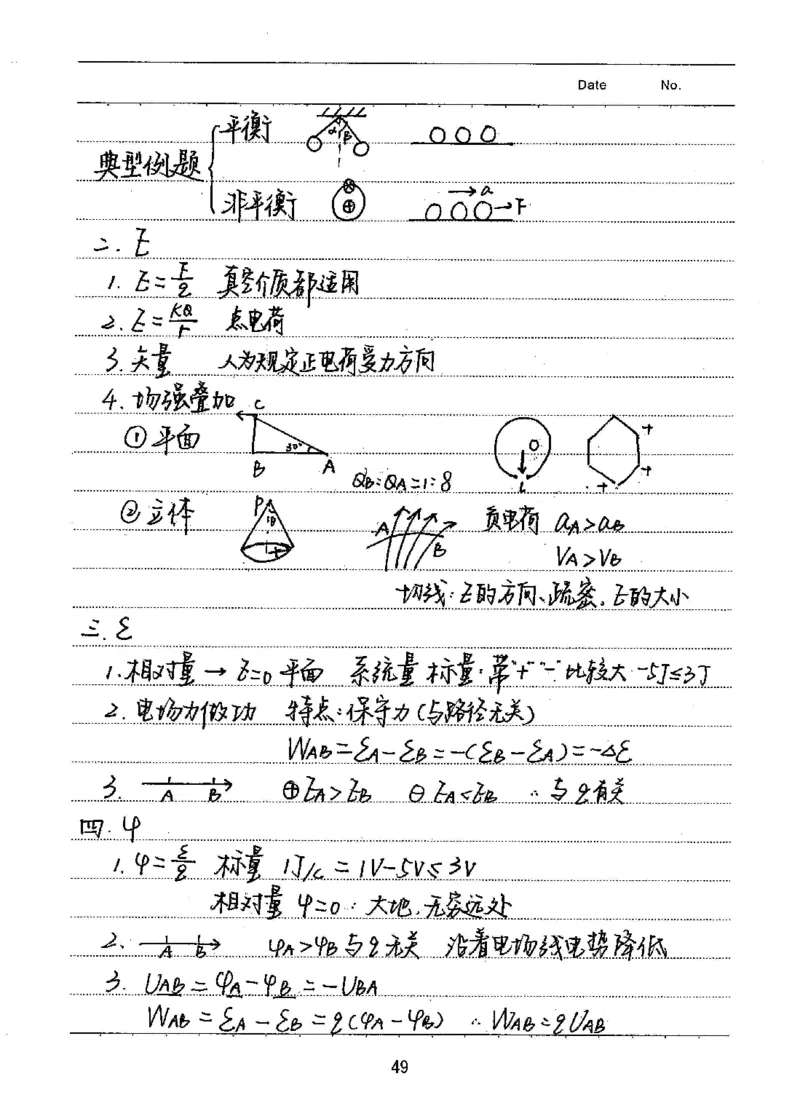 Date No.
典型例题
平衡 α β
非平衡 ⊗ ⊕ →a →F
二. E
1. E=F/q 真空介质都适用
2. E=KQ/r 点电荷
3. 矢量 人为规定正电荷受力方向
4. 场强叠加 C
①平面 30° B A QB:QA=1:8 O L + + +
②立体 P + A B 负电荷 aA>aB
VA>VB
切线:E的方向、疏密、E的大小
三. ε
1. 相对量→ε=0平面 系统量 标量. 带"+""-"比较大 -5J≤3J
2. 电场力做功 特点:保守力(与路径无关)
WAB=εA-εB=-(εB-εA)=-Δε
3. A B ⊕EA>EB ⊖EA<EB ∴与q有关
四. φ
1. φ=ε/q 标量 1J/c=1V-5V≤3V
相对量 φ=0:大地、无穷远处
2. A B φA>φB与q无关 沿着电场线电势降低
3. UAB=φA-φB=-UBA
WAB=εA-εB=q(φA-φB) ∴WAB=qUAB
49